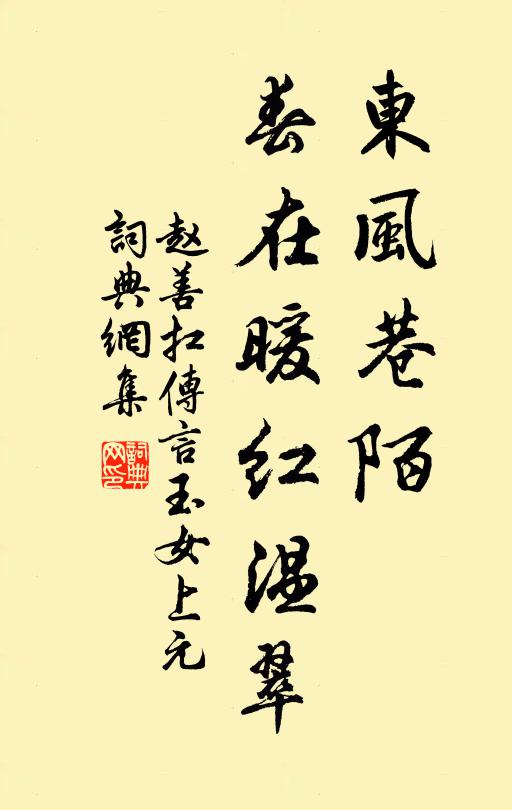 東風巷陌
春在暖红温翠
赵善扛傳言玉女上元
詞典網集
詞典网印